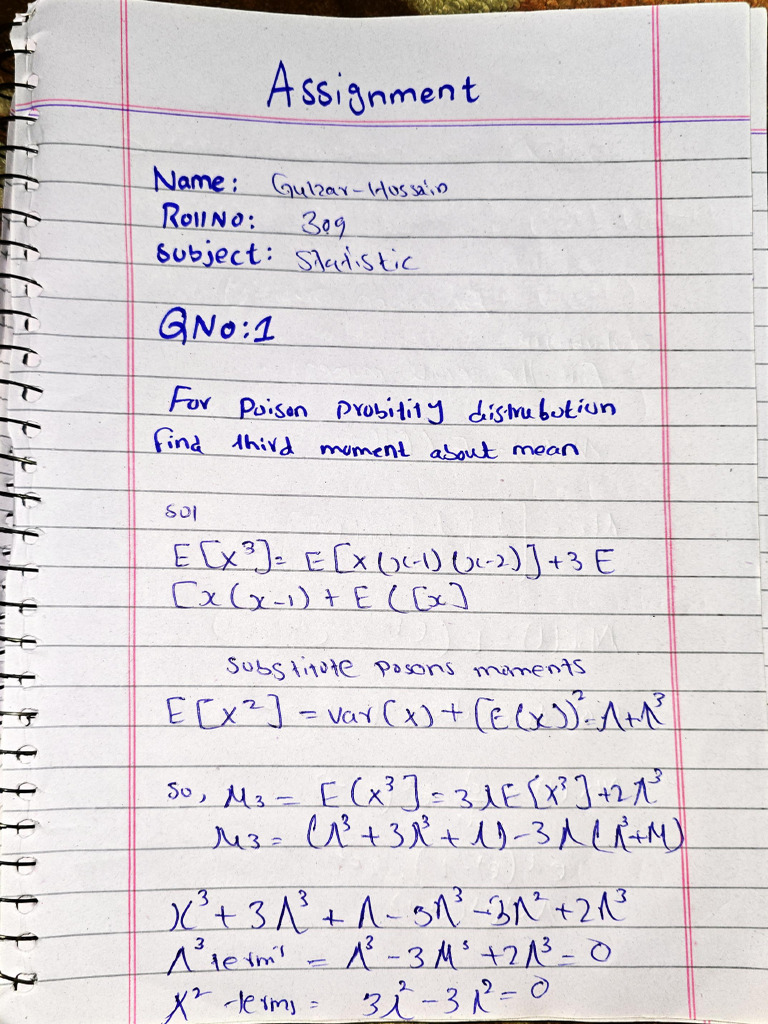 Assignment
Name: Gulzar-Hussain
Roll No: 309
Subject: Statistic
QNo:1
For Poison Probitity distrubution
find third moment about mean
sol
E[X³]= E[X(x-1)(x-2)]+3 E
[x(x-1) + E ([x]
substitute posons moments
E[X²] = var(x) + [E(x))²=Λ+Λ³
so, M₃ = E(X³] = 3λE[X³]+2Λ³
M₃ = (Λ³+3Λ³+Λ)-3Λ(Λ³+M)
X³+3Λ³+Λ-3Λ³-3Λ²+2Λ³
Λ³ term's = Λ³-3M³+2Λ³=0
X² terms = 3λ²-3λ²=0